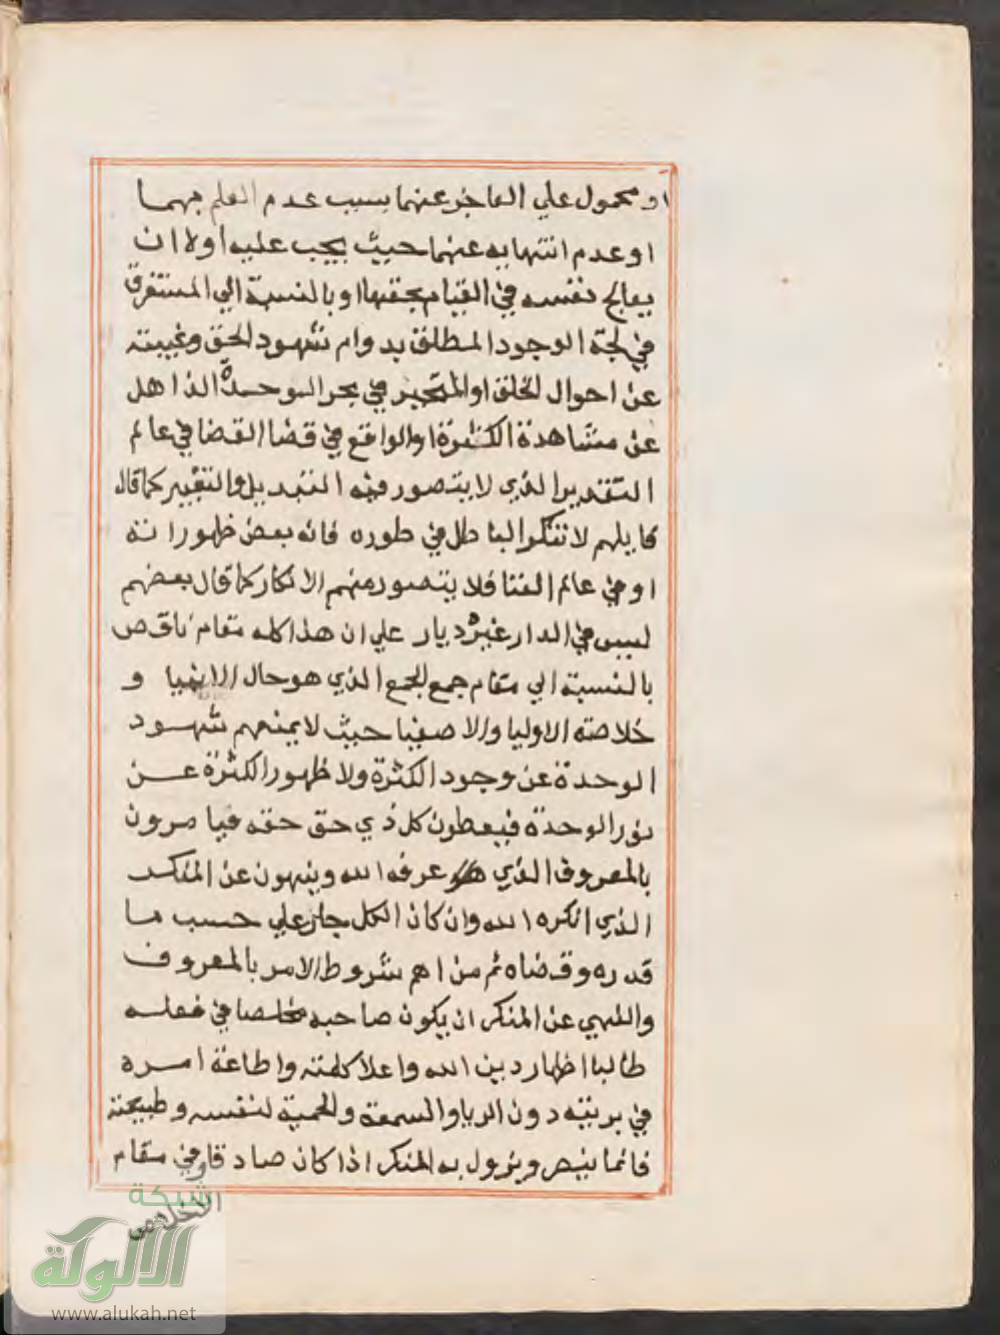 او محمول علي العاجز عنهما بسبب عدم العلم بهما
او عدم انتهايه عنهما حيث يجب عليه اولا ان
يعالج نفسه في القيام بحقها او بالنسبة الي المستغرق
في لجة الوجود المطلق بدوام شهود الحق وغيبته
عن احوال الخلق او المتحير في بحر الوحدة الذاهل
عن مشاهدة الكثرة او الواقع في قضا القضا في عالم
التقدير الذي لا يتصور فيه التبديل والتغيير كما قال
قايلهم لا تنكر الباطل في طوره فانه بعض ظهوراته
او في عالم الفنا فلا يتصور منهم الانكار كما قال بعضهم
ليس في الدار غيره ديار علي ان هذا كله مقام ناقص
بالنسبة الي مقام جمع الجمع الذي هو حال الانبيا و
خلاصة الاوليا والاصفيا حيث لا يمنعهم شهود
الوحدة عن وجود الكثرة ولا ظهور الكثرة عن
نور الوحدة فيعطون كل ذي حق حقه فيامرون
بالمعروف الذي عرفه الله وينهون عن المنكر
الذي انكره الله وان كان الكل جار علي حسب ما
قدره وقضاه ثم من اهم شروط الامر بالمعروف
والنهي عن المنكر ان يكون صاحبه مخلصا في فعله
طالبا اظهار دين الله واعلا كلمته واطاعة امره
في بريته دون الريا والسمعة والحمية لنفسه وطبيعته
فانما ينصر ويزول به المنكر اذا كان صادقا وفي مقام
الاخلاص
شبكة
الألوكة
www.alukah.net